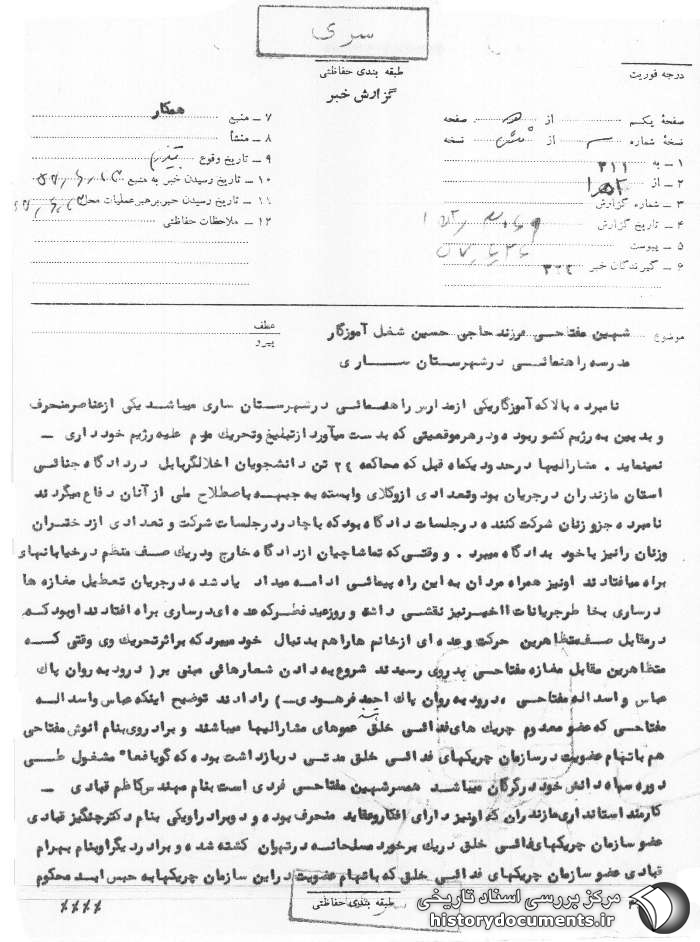 سری
طبقه بندی حفاظتی
گزارش خبر
درجه فوریت
صفحهٔ یکم از صفحه
نسخهٔ شماره از نسخه
۱ ــ به ۳۱۱
۲ ــ از
۳ ــ شماره گزارش
۴ ــ تاریخ گزارش
۵ ــ پیوست
۶ ــ گیرندگان خبر ۳۲۴
۷ ــ منبع همکار
۸ ــ منشأ
۹ ــ تاریخ وقوع
۱۰ ــ تاریخ رسیدن خبر به منبع
۱۱ ــ تاریخ رسیدن خبر برهبر عملیات محل
۱۲ ــ ملاحظات حفاظتی
موضوع شهین مفتاحی فرزند حاجی حسین شغل آموزگار
مدرسه راهنمائی در شهرستان ساری
عطف
پیرو
نامبرده بالا که آموزگار یکی از مدارس راهنمائی در شهرستان ساری میباشد یکی از عناصر منحرف
و بدبین به رژیم کشور بوده و در هر موقعیتی که بدست میآورد از تبلیغ و تحریک مردم علیه رژیم خودداری ــ
نمینماید . مشارالیها در حدود یکماه قبل که محاکمه ۲۴ تن دانشجویان اخلالگر بابل در دادگاه جنائی
استان مازندران در جریان بود و تعدادی از وکلای وابسته به جبهه باصطلاح ملی از آنان دفاع میکردند
نامبرده جزو زنان شرکت کننده در جلسات دادگاه بود که با چادر در جلسات شرکت و تعدادی از دختران
وزنان را نیز با خود بدادگاه میبرد . و وقتی که تماشاچیان از دادگاه خارج و در یک صف منظم در خیابانهای
براه میافتادند او نیز همراه مردان به این راه پیمائی ادامه میداد یاد شده در جریان تعطیل مغازه ها
در ساری بخاطر جریانات اخیر نیز نقشی داشته و روز عید فطر که عده ای در ساری براه افتادند او بود که
در مقابل صف متظاهرین حرکت و عده ای از خانم ها را هم بدنبال خود میبرد که بر اثر تحریک وی وقتی که
متظاهرین مقابل مغازه مفتاحی پدر وی رسیدند شروع به دادن شعارهائی مبنی بر ( درود به روان پاک
عباس و اسداله مفتاحی ، درود به روان پاک احمد فرهودی ــ ) را دادند توضیح اینکه عباس و اسداله
مفتاحی که عضو معدوم چریک های فدائی خلق عموهای مشارالیها میباشند و برادر وی بنام انوش مفتاحی
هم باتهام عضویت در سازمان چریکهای فدائی خلق مدتی در بازداشت بوده که گویا فعلاً مشغول طی
دوره سپاه دانش خود در گرگان میباشد همسر شهین مفتاحی فردی است بنام مهندس کاظم قبادی ــ
کارمند استانداری مازندران که او نیز دارای افکار و عقاید منحرف بوده و دو برادر او یکی بنام دکتر چنگیز قبادی
عضو سازمان چریکهای فدائی خلق در یک برخورد مسلحانه در تهران کشته شده و برادر دیگر او بنام بهرام
قبادی عضو سازمان چریکهای فدائی خلق که باتهام عضویت در این سازمان چریکها به حبس ابد محکوم
طبقه بندی حفاظتی
مرکز بررسی اسناد تاریخی
historydocuments.ir